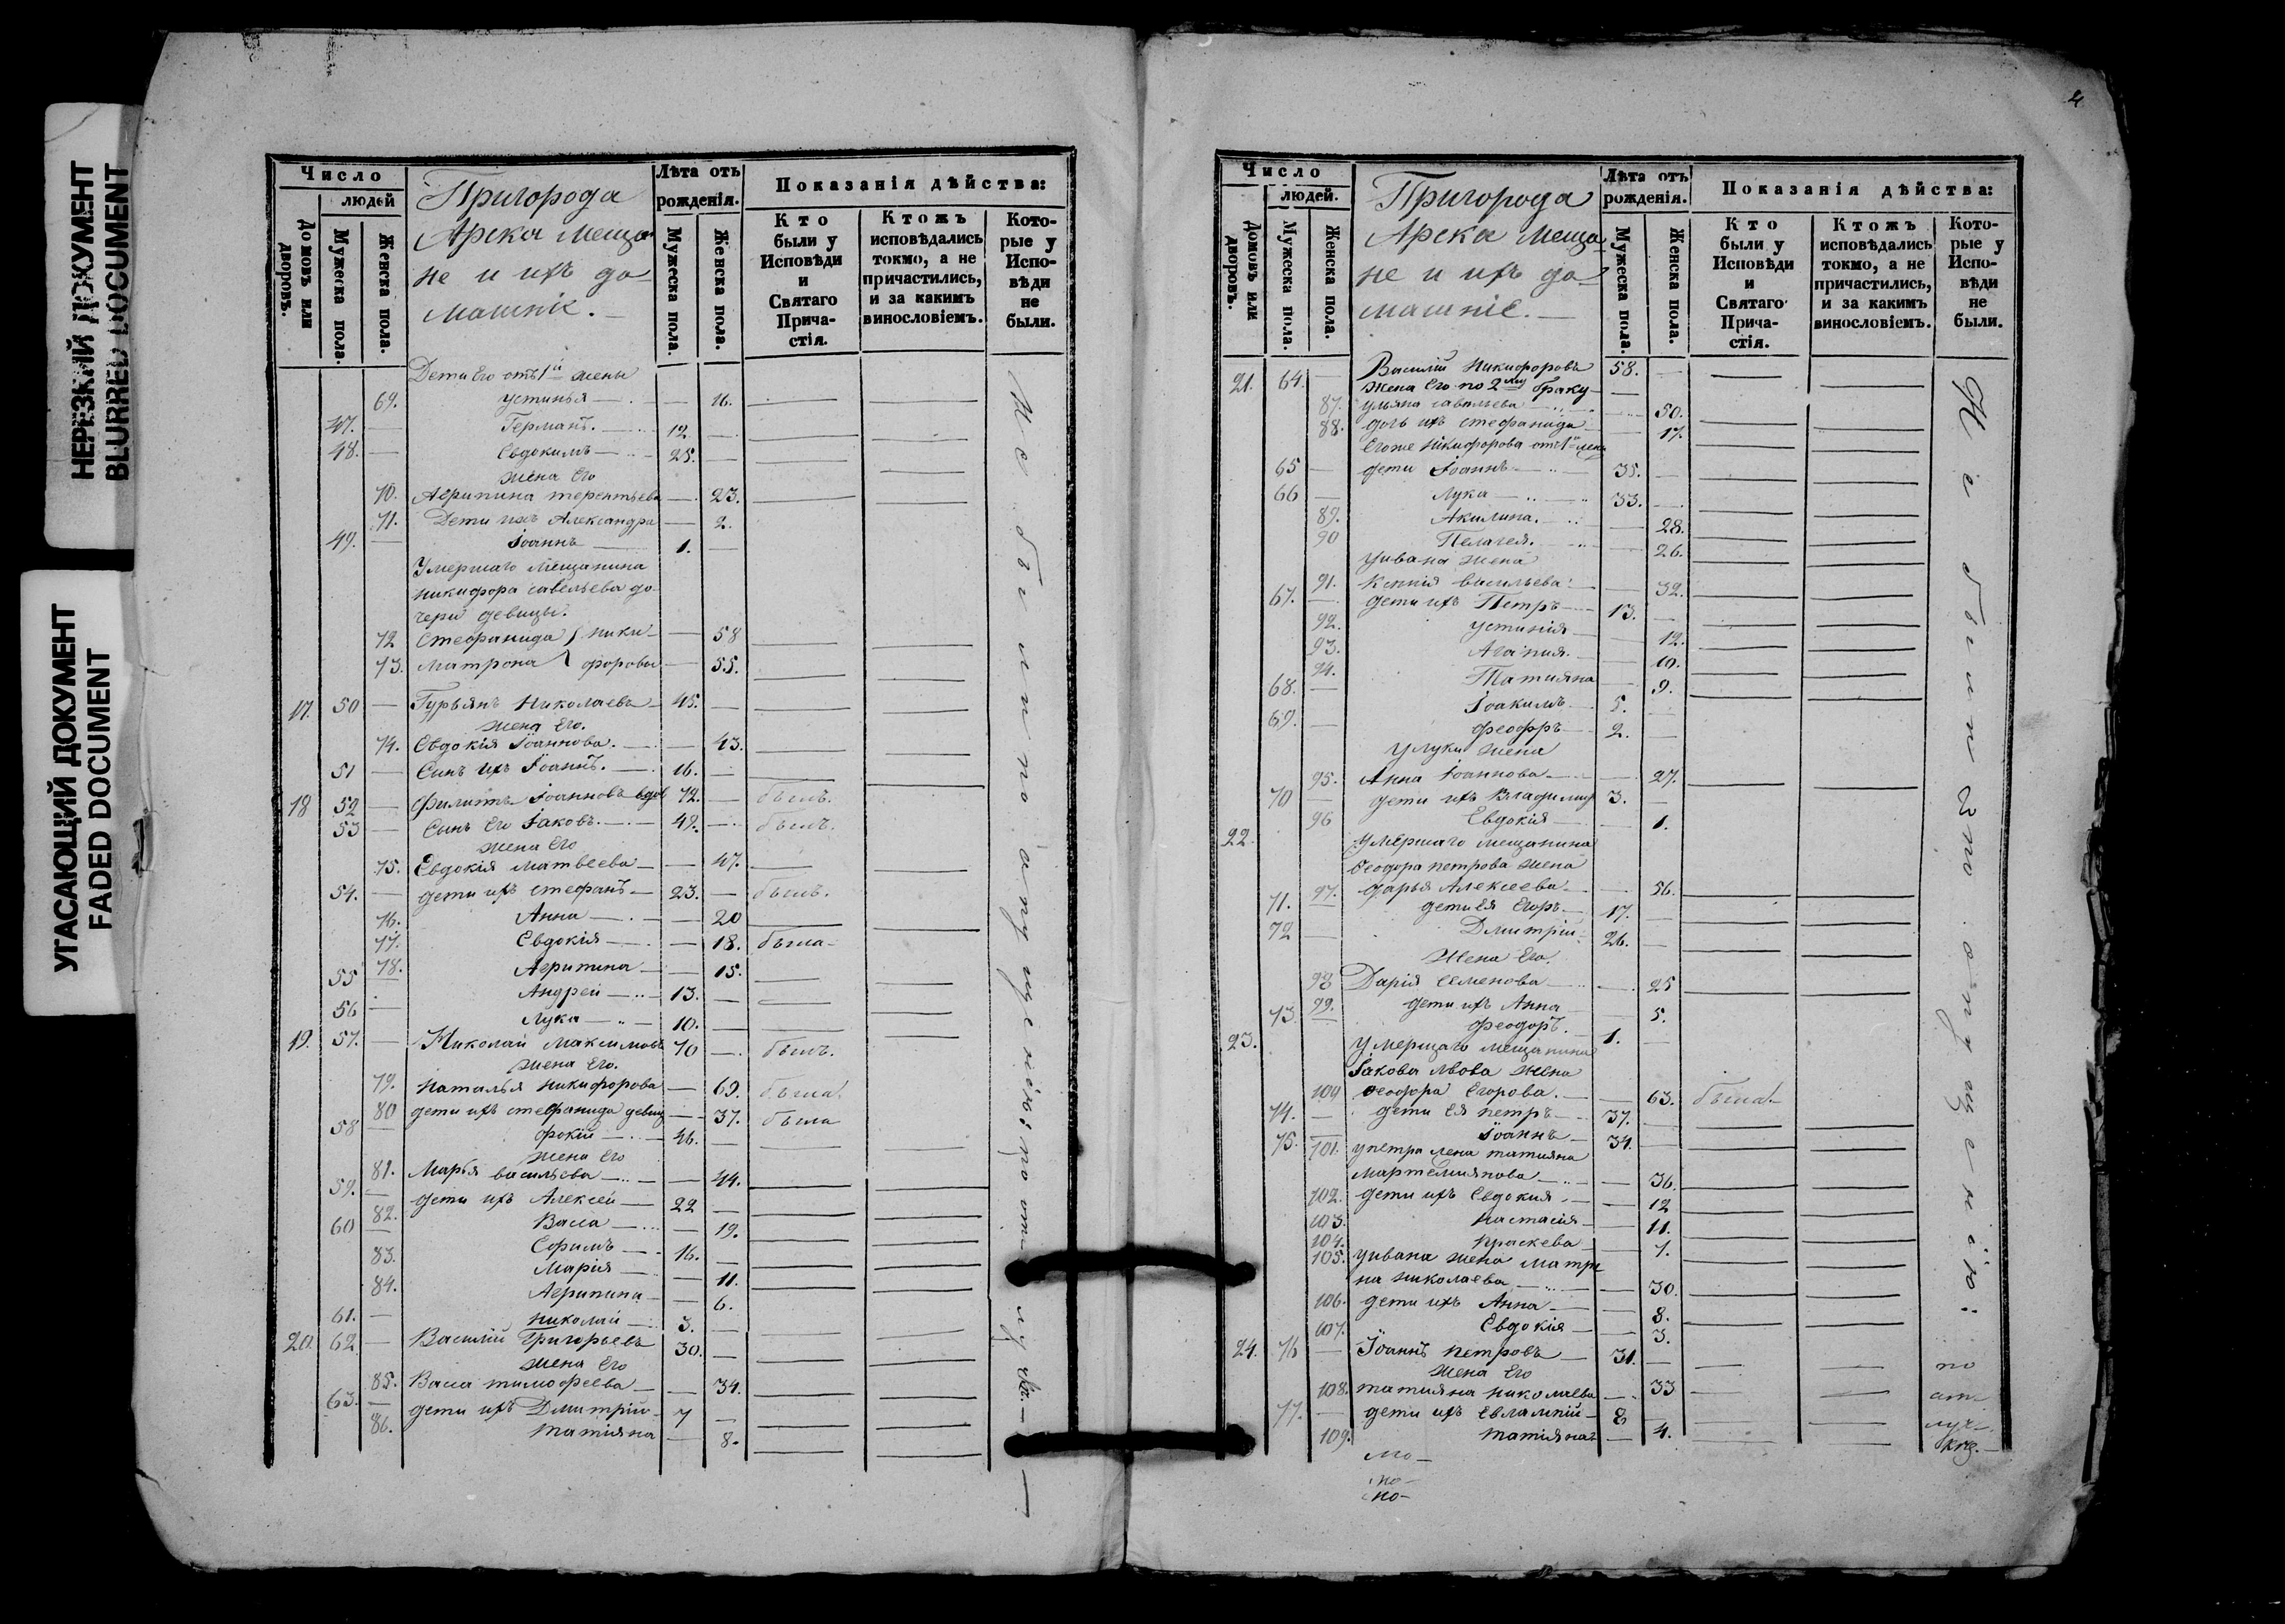 НЕРЕЗКИЙ ДОКУМЕНТ
BLURRED DOCUMENT
УГАСАЮЩИЙ ДОКУМЕНТ
FADED DOCUMENT
Число
людей
Домовъ или дворовъ.
Мужеска пола.
Женска пола.
Пригорода
Арска меща-
не и ихъ до-
машніе.
Лѣта отъ рожденія.
Мужеска пола.
Женска пола.
Показанія дѣйства:
Кто были у Исповѣди и Святаго Прича-стія.
Ктожъ исповѣдались токмо, а не причастились, и за какимъ винословіемъ.
Кото-рые у Испо-вѣди не были.
Дети Его отъ 1й жены
69. устинья — 16.
47. — Германъ. 12. —
48. — Евдокимъ 25. —
жена Его
70. Агрипина терентьева — 23.
71. Дети ихъ Александра — 2.
49. — Іоаннъ 1. —
Умершаго мещанина
никифора савельева до-
чери девицы.
72 Стефанида } ники- — 58
73. матрона } форовы — 55.
17. 50 — Гурьянъ Николаевъ 45. —
жена Его.
74. Евдокія Іоаннова. — 43.
51 — Сынъ ихъ Іоаннъ. 16. —
18 52 — филиппъ Іоанновъ вдов 72. — былъ.
53 — Сынъ Его Іаковъ. 49. — былъ.
жена Его
75. Евдокія матвеева — 47.
54. — дети ихъ стефанъ 23. — былъ.
76. Анна — 20
77. Евдокія — 18. была
78. Агрипина — 15.
55 Андрей 13. —
56 — Лука 10. —
19. 57. — Николай максимовъ 70 — былъ.
жена Его.
79. наталья никифорова — 69. была.
80 дети ихъ стефанида девиц — 37. была
58 — фокій 46. —
жена Его
81. Марья васильева — 44.
59. — дети ихъ Алексей 22 —
82. Васса — 19.
60 — Ефимъ 16. —
83. Марія — 11.
84. Агрипина — 6.
61. — николай 3. —
20. 62 — Василій Григорьевъ 30. —
жена Его
85. Васса тимофеева — 34.
63. — дети ихъ Дмитрій 7 —
86. татіяна — 8.
Не были по опущенію; по отлучк. —
4
Число
людей.
Домовъ или дворовъ.
Мужеска пола.
Женска пола.
Пригорода
Арска меща-
не и ихъ до-
машніе.
Лѣта отъ рожденія.
Мужеска пола.
Женска пола.
Показанія дѣйства:
Кто были у Исповѣди и Святаго Прича-стія.
Ктожъ исповѣдались токмо, а не причастились, и за какимъ винословіемъ.
Кото-рые у Испо-вѣди не были.
21. 64. — Василій Никифоровъ 58. —
жена Его по 2му браку —
87. ульяна савельева 50.
88. дочь ихъ стефанида — 17.
Егоже никифорова отъ 1й жены
65 — дети Іоаннъ 35. —
66 — Лука 33. —
89. Акилина. — 28.
90 Пелагея. — 26.
уивана жена
91. Ксенія васильева — 32.
67. — дети ихъ Петръ 13. —
92. устинія — 12.
93. Агапия. — 10.
94. Татияна — 9.
68. — Іоакимъ 5. —
69. — феодоръ 2. —
у луки жена
95. Анна Іоаннова — 27.
70 — дети ихъ Владимир 3. —
96 Евдокія — 1.
22. умершаго мещанина
Феодора петрова жена
97. дарья Алексеева — 56.
71. — дети Ея Егоръ 17. —
72 — Дмитрій 26. —
жена Его.
98 Дарія семенова — 25
99. дети ихъ Анна — 5.
73. — феодоръ. 1. —
23. умершаго мещанина
Іакова львова жена
100 Феодора Егорова. — 63. была
74. — дети Ея петръ 37. —
75. — Іоаннъ 34. —
101. у петра жена татияна
мартемиянова — 36.
102. дети ихъ Евдокия — 12
103. настасія — 11.
104. праскева — 7.
105. уивана жена матре
на николаева — 30.
106. дети ихъ Анна — 8.
107. Евдокія — 3.
24. 76 — Іоаннъ петровъ 31. —
жена Его
108. татияна николаева — 33
77. — дети ихъ Евлампій 8
109. татияна — 4.
Не были по опущенію:
по
от-
луч-
кѣ. —
мо-
но-
но-